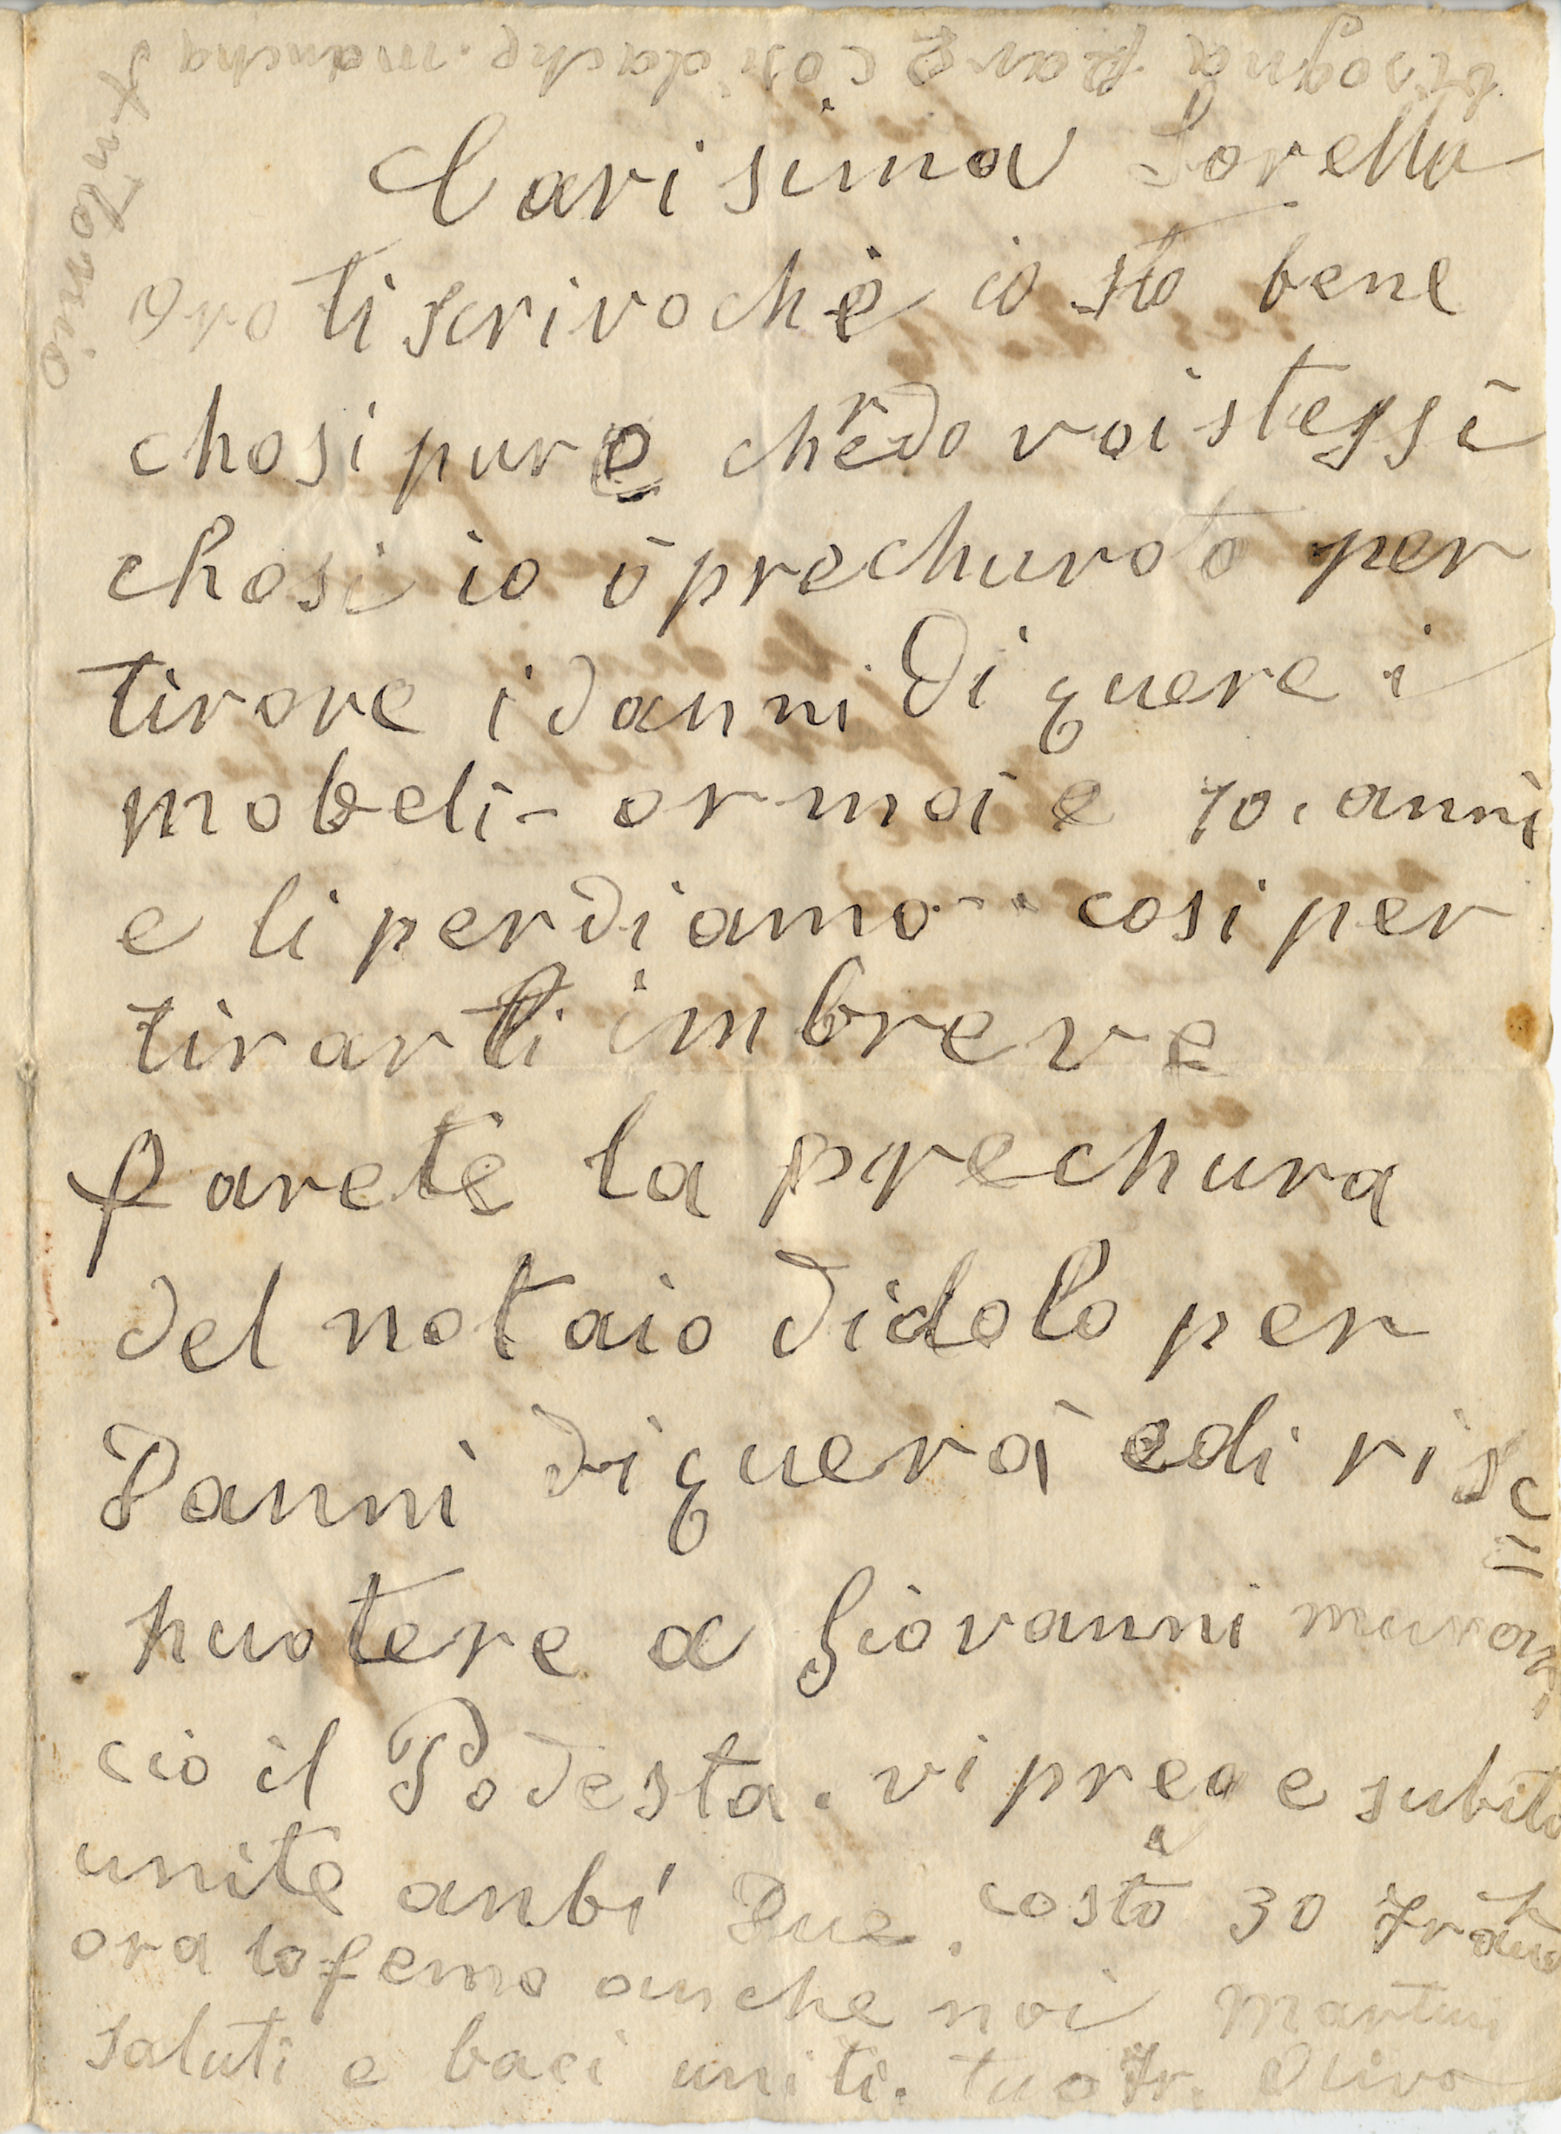 bisogna fare cosi dache mancha
Antonio
Carisima Sorella
Ora ti scrivo che io sto bene
chosi pure chredo voi stessi
chosi io ò prechurato per
tirare i danni di quere i
mobeli - ormai e 10. anni
e li perdiamo - cosi per
tirarli imbreve
farete la prechura
del notaio didolo per
Danni di querà e di risc=
huotere a Giovanni muran
cio il Podesta. vi prego e subito
unite anbi Due. costa 30 franchi
ora lo femo anche noi Martini
saluti e baci uniti. tuo fr. Olivo